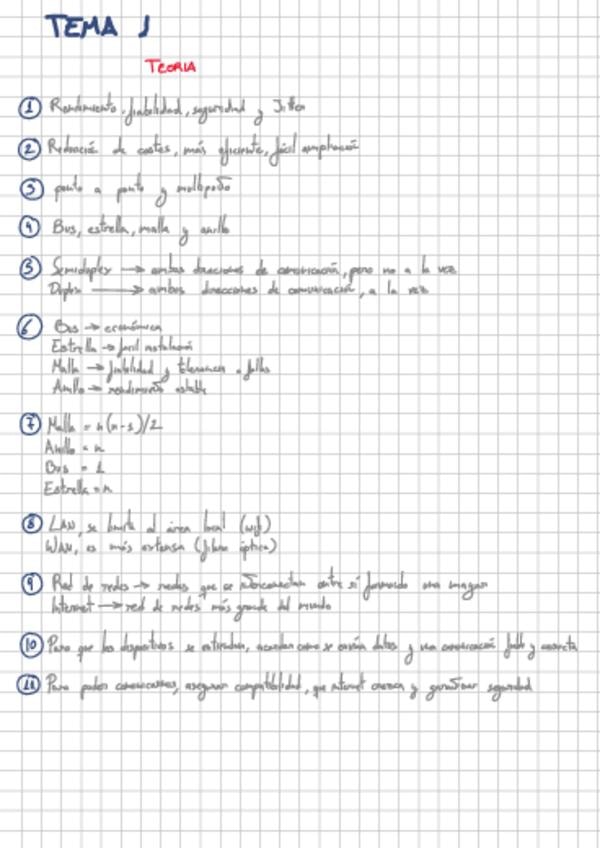 TEMA 1
TEORIA
1 Rendimiento, fiabilidad, seguridad y Jitter
2 Reducción de costes, más eficiente, fácil ampliación
3 punto a punto y multipunto
4 Bus, estrella, malla y anillo
5 Semiduplex → ambas direcciones de comunicación, pero no a la vez
Duplex → ambas direcciones de comunicación, a la vez
6 Bus → económica
Estrella → fácil instalación
Malla → fiabilidad y tolerancia a fallos
Anillo → rendimiento estable
7 Malla = n(n-1)/2
Anillo = n
Bus = 1
Estrella = n
8 LAN, se limita al área local (wifi)
WAN, es más extensa (fibra óptica)
9 Red de redes → redes que se interconectan entre sí formando una mayor
Internet → red de redes más grande del mundo
10 Para que los dispositivos se entiendan, acuerdan como se envían datos y una comunicación fiable y correcta
11 Para poder comunicarnos, asegurar compatibilidad, que internet crezca y garantizar seguridad